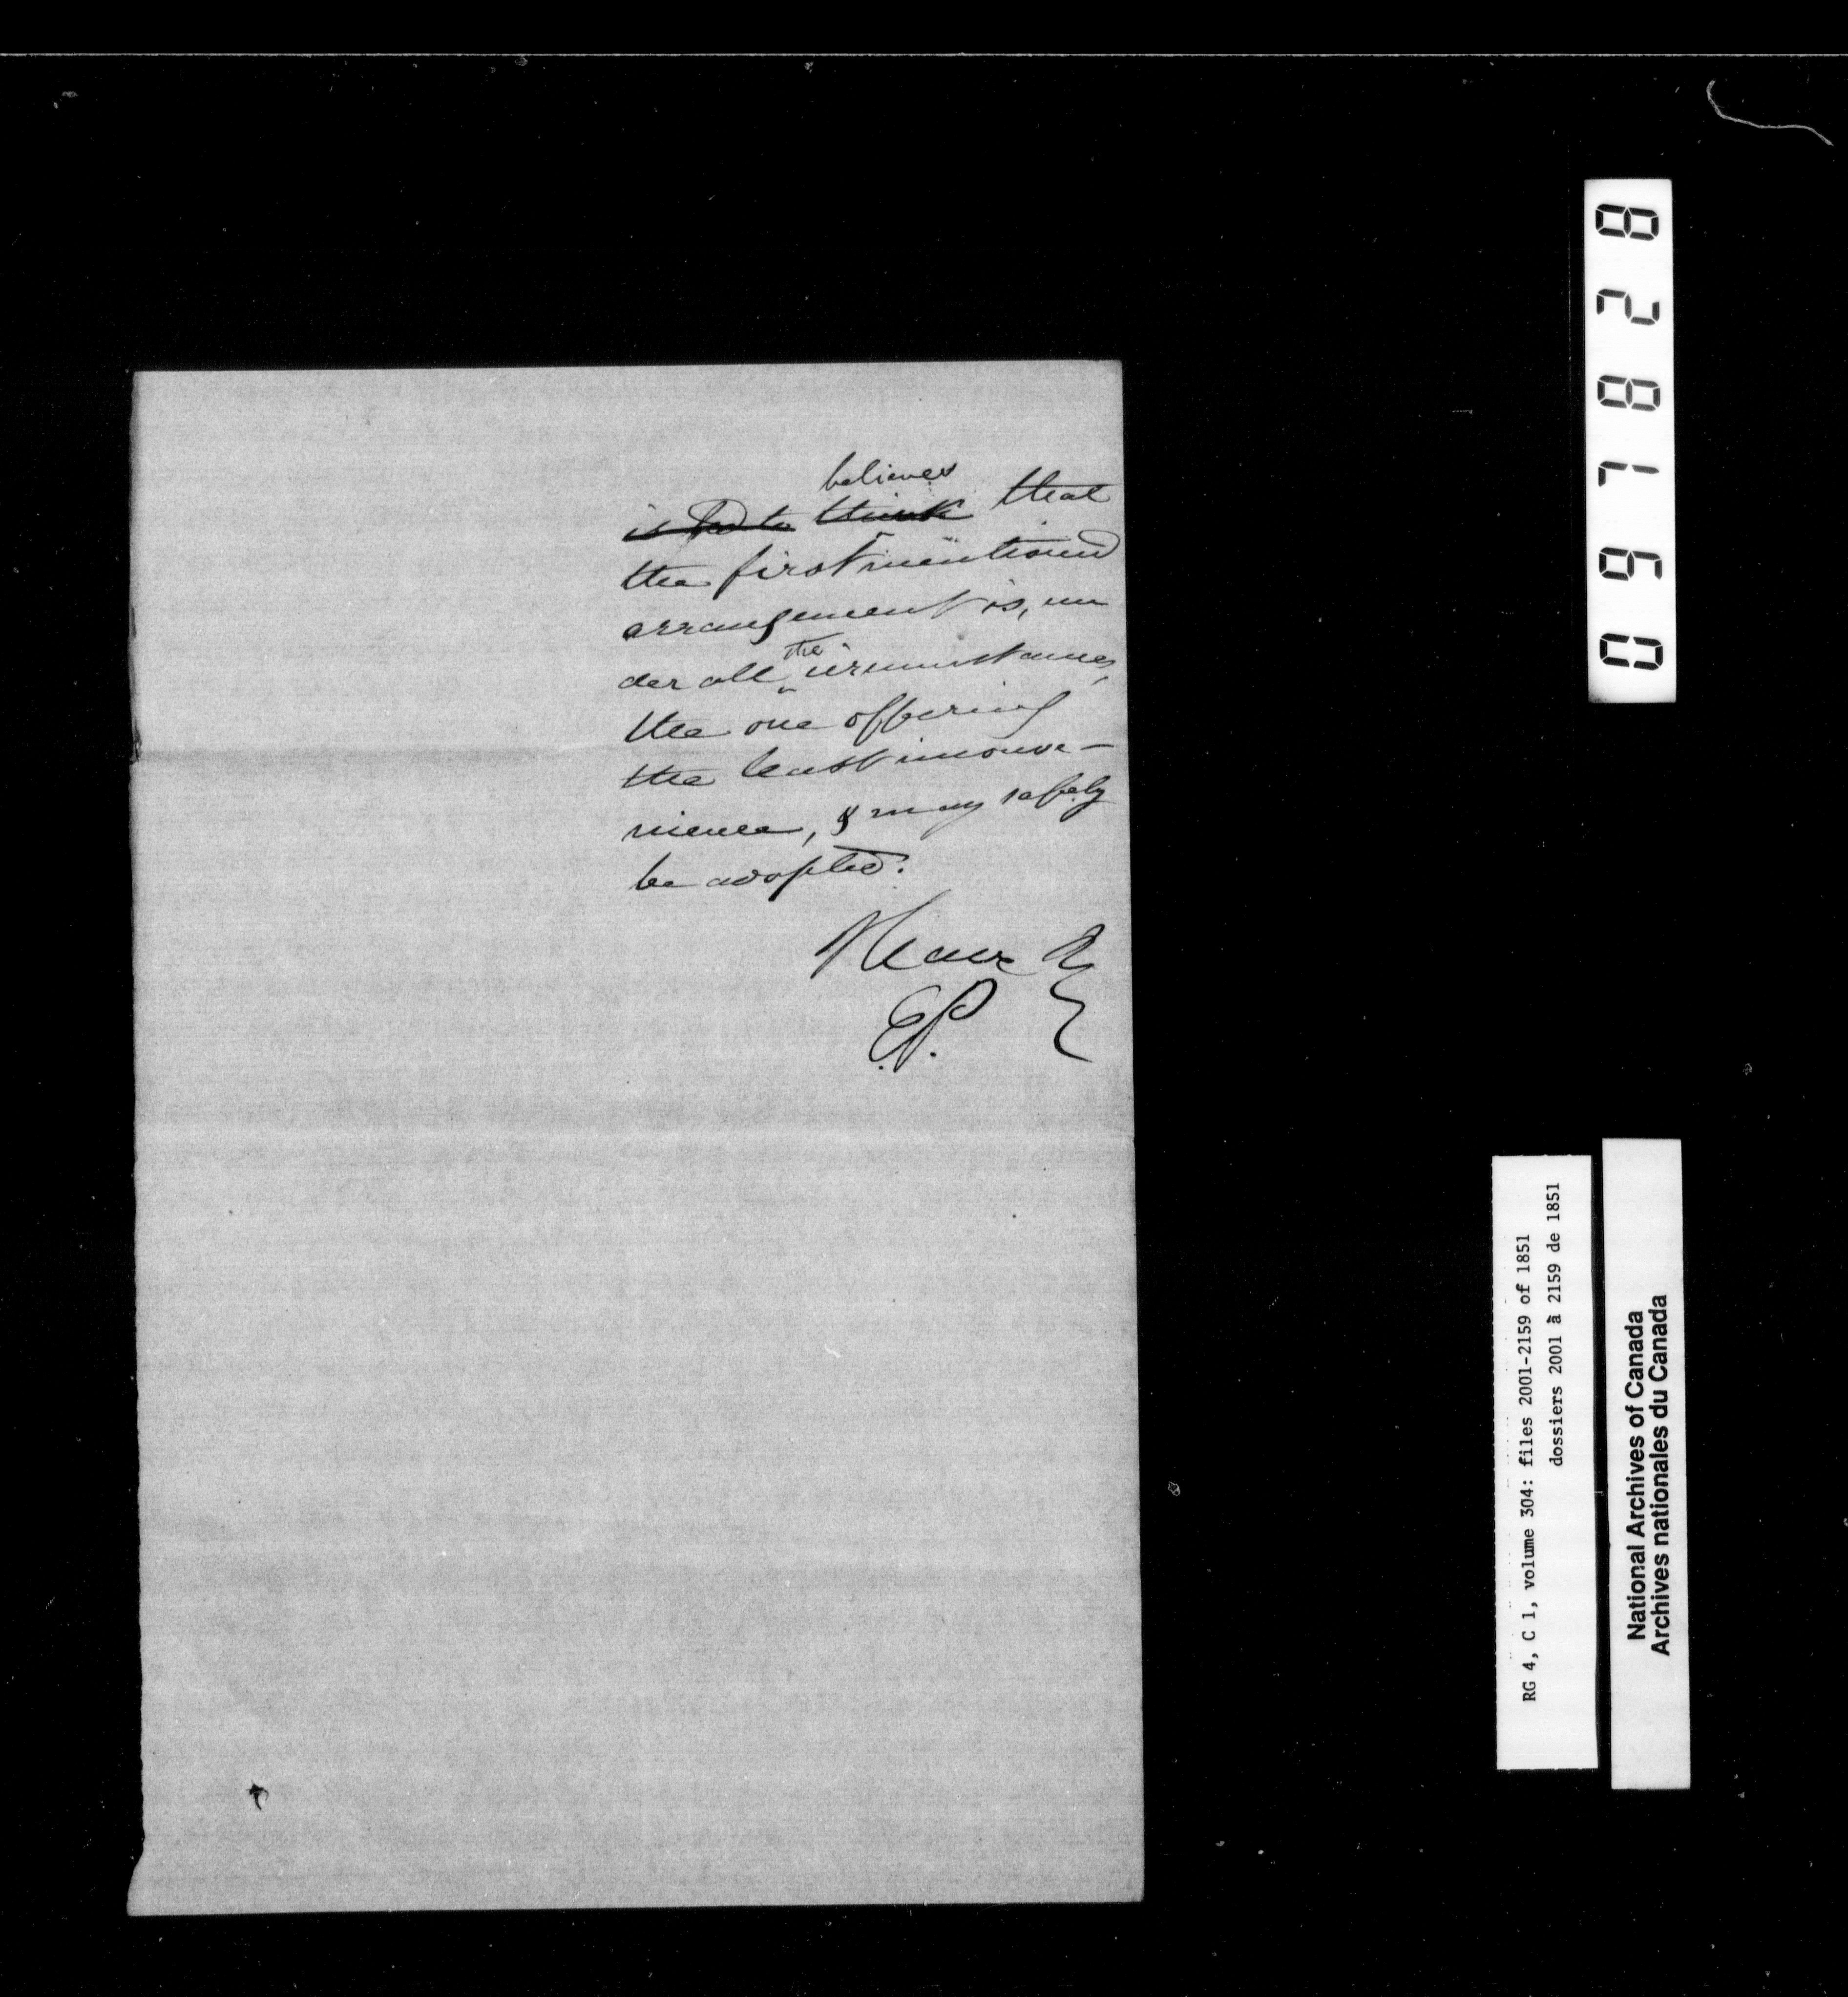 believes
is led to think that
the first mentioned
arrangement is, un
der all the circumstances,
the one offering
the least inconve-
nience, & may safely
be adopted.
I have &c
E.P.
097828
RG 4, C 1, volume 304: files 2001-2159 of 1851
dossiers 2001 à 2159 de 1851
National Archives of Canada
Archives nationales du Canada